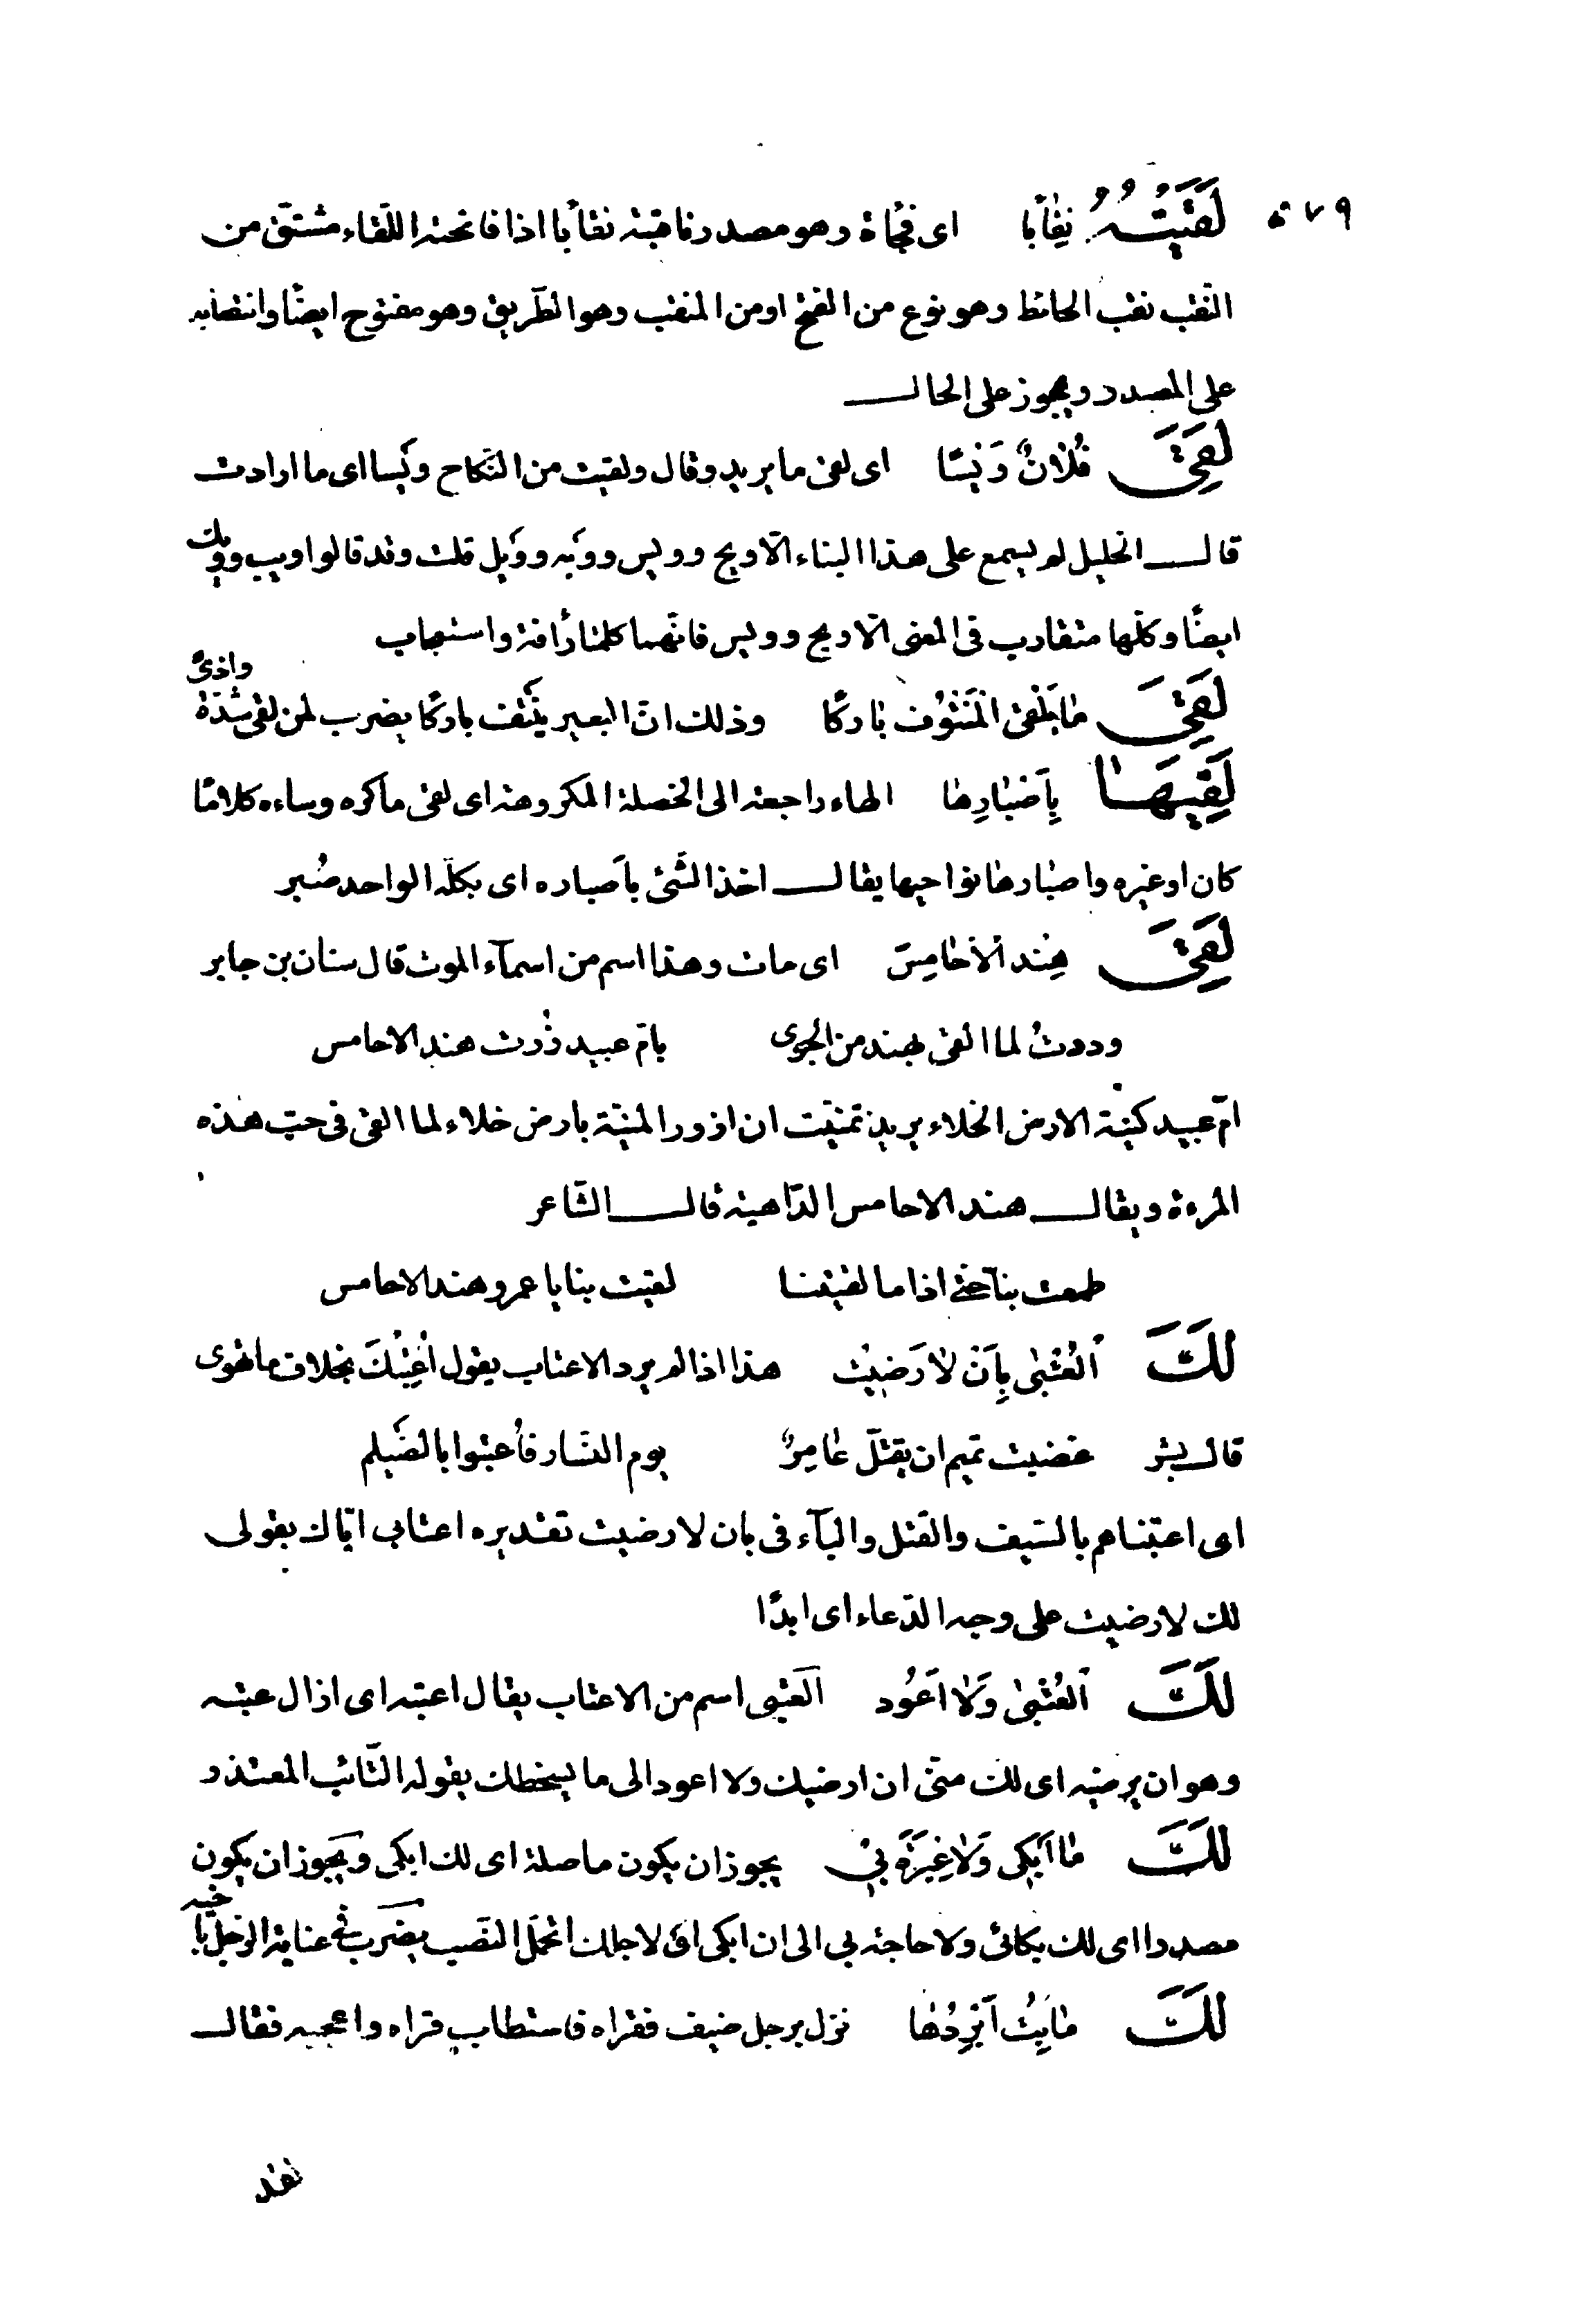 ٥٧٩
لَقَيْتُهُ نِقَابًا اى فجُأة وهو مصدر ناقبته نقابًا اذا فاتحته اللّقاء مشتقّ من
النّقب نقب الحائط وهو نوع من الفتح او من المنقب وهو الطّريق وهو مفتوح ايضًا وانتصابه
على المصدر ويجوز على الحال
لَقِىَ فُلانٌ وَيْسًا اى لقى ما يريد وقال ولقيت من النّكاح ويْسا اى ما ارادت
قال الخليل لم يسمع على هذا البناء الّا ويح وويس وويْه وويْل قلت وقد قالوا ويب وويك
ايضًا وكلّها متقارب فى المعنى الّا ويح وويس فانّهما كلمتا رأفة واستعجاب
لَقِىَ مَا يَلْقى الْمَنْتُوف بَاركًا وذلك انّ البعير ينْتف باركًا يضرب لمن لقى شدّة واذىً
لَقِيَهَا بِأَصْبَارِهَا الهاء راجعة الى الخصلة المكروهة اى لقى ما كره وساءه كلامًا
كان او غيره واصبارها نواحيها يقال اخذ الشّئ بأصباره اى بكلّه الواحد صُبر
لَقِىَ هِنْد الْأَحَامِسَ اى مات وهذا اسم من اسمآء الموت قال سنان بن جابر
وددتُ لما القى بهند من الجوى بامّ عبيد زُرت هند الاحامس
امّ عبيد كنية الارض الخلاء يريد تمنّيت ان ازور المنيّة بارض خلاء لما القى فى حبّ هذه
المرءة ويقال هند الاحامس الدّاهية قال الشّاعر
طمعت بنا حتّى اذا ما لقيتنا لقيت بنا يا عمرو هند الاحامس
لَكَ الْعُتْبَى بِأَنْ لَا رَضِيْتَ هذا اذا لم يرد الاعتاب يقول اُعْتِبُكَ بخلاف ما تهوى
قال بشر غضبت تميم ان يقتّل عَامِرٌ يوم النّسار فأُعتبوا بالصَّيلم
اى اعتبناهم بالسّيف والقتل والبآء فى بان لا رضيت تقديره اعتابى ايّاك بقولى
لك لا رضيت على وجه الدّعاء اى ابدًا
لَكَ الْعُتْبَى وَلَا اَعُود الْعتبى اسم من الاعتاب يقال اعتبه اى ازال عتبه
وهو ان يرضيه اى لك منّى ان ارضيك ولا اعود الى ما يسخطك يقوله التّائب المعتذر
لَكَ مَا اَبْكى وَلَا عِبْرَةَ بِيْ يجوز ان يكون ما صلة اى لك ابكى ويجوز ان يكون
مصدرا اى لك بكائى ولا حاجة بى الى ان ابكى اى لاجلك اتحمّل النّصب يضرب فى عناية الرّجل باخيه
لَكَ مَا بِتُّ اُبَرِّدُهَا نزل برجل ضيف فقراه فاستطاب قراه واعجبه فقال
فقد